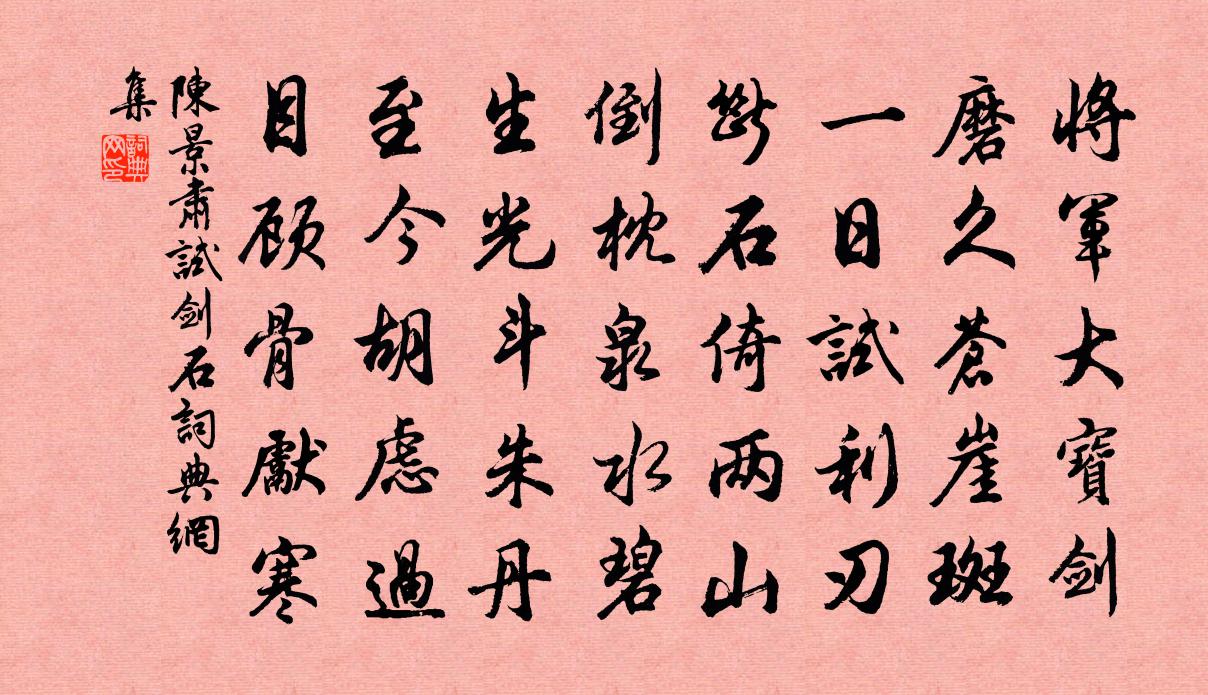 將軍大寶劍
磨久蒼崖斑
一日試利刃
斷石倚两山
倒枕泉水碧
生光斗朱丹
至今胡慮過
目顾骨獻寒
陳景肅試劍石詞典網
集
詞典
网印